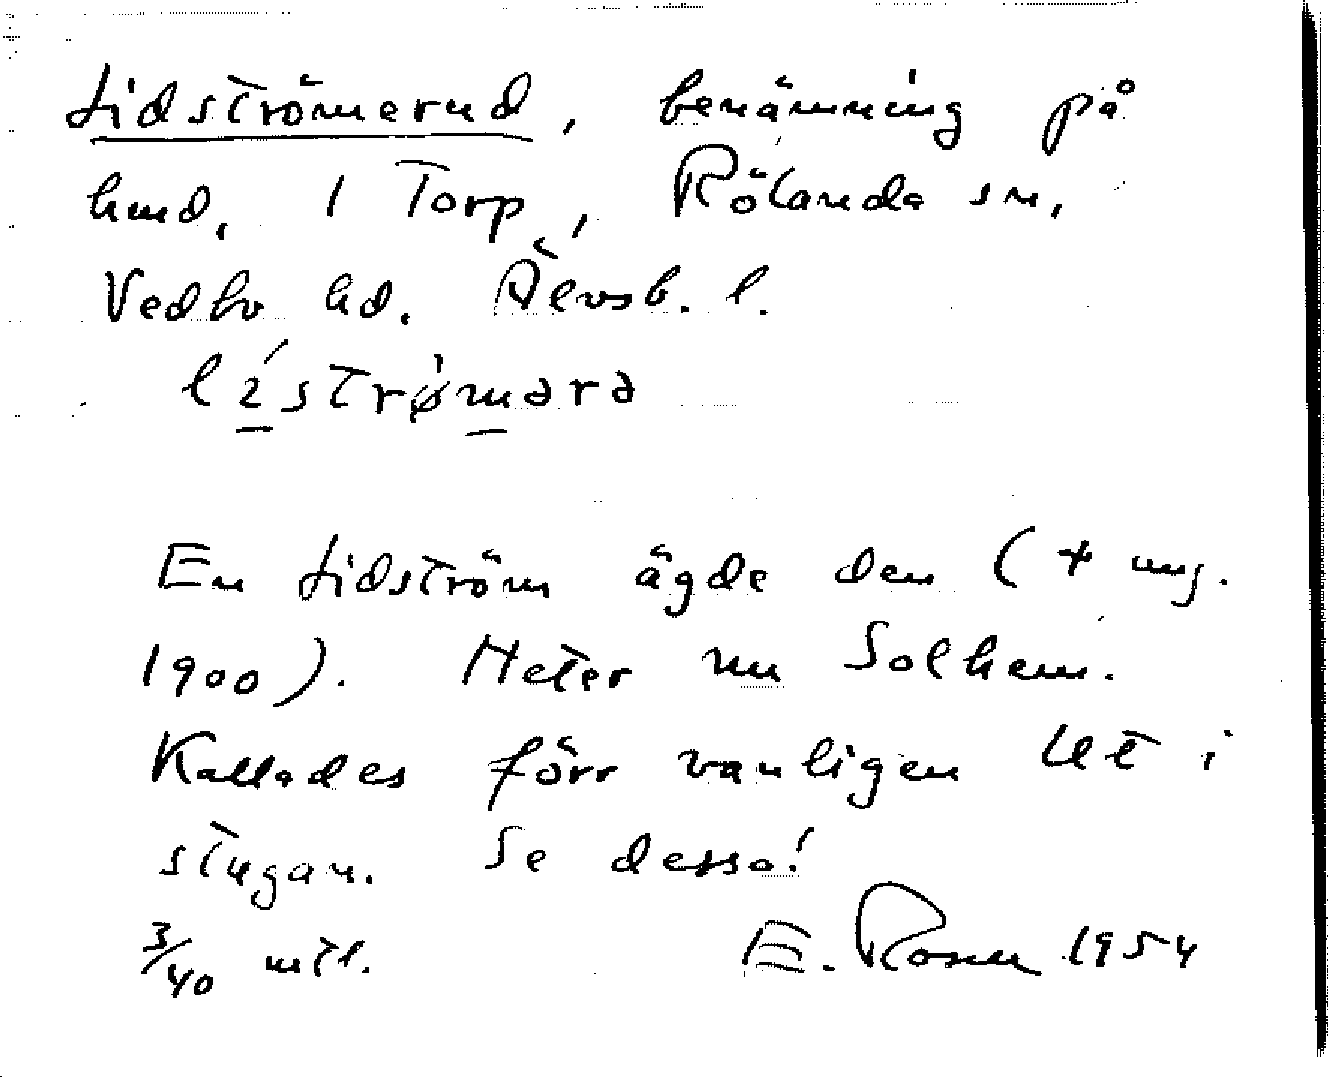 Lidströmerud, benämning på
hmd. 1 Torp, Rölanda sn,
Vedbo hd. Älvsb. l.
lístrømərə
En Lidström ägde den († ung.
1900). Heter nu Solhem.
Kallades förr vanligen Ut i
stugan. Se desso!
3/40 mtl. E. Rosen 1954